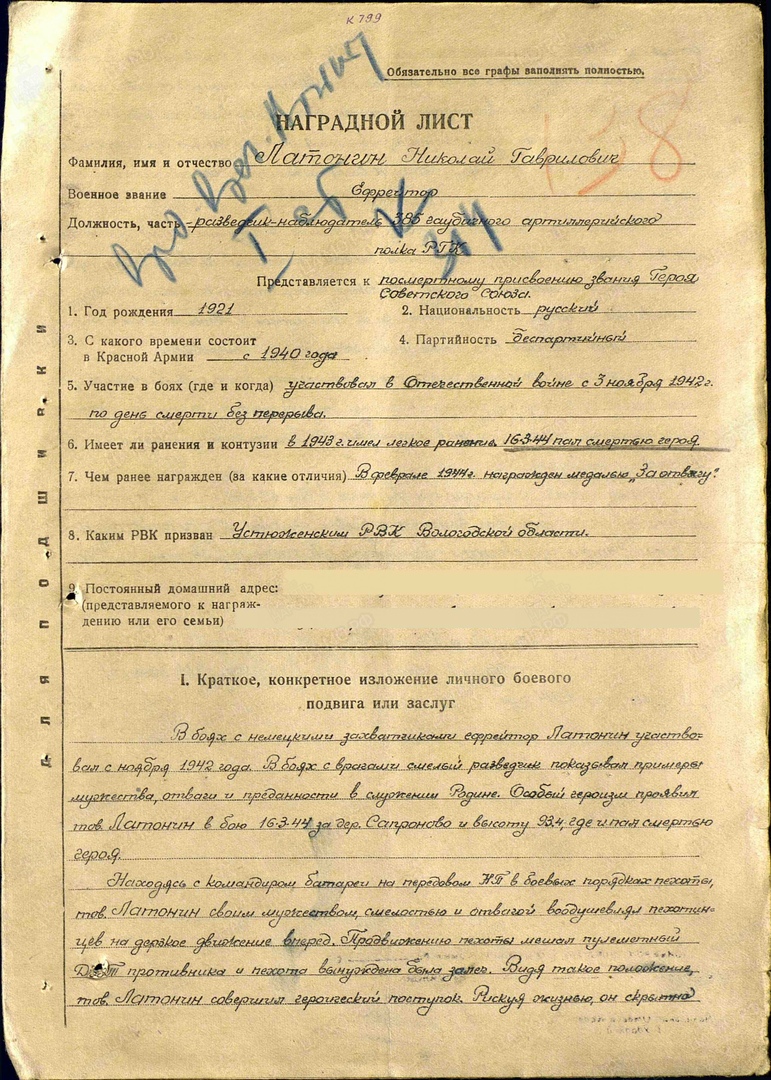 К 799
Обязательно все графы заполнять полностью.
НАГРАДНОЙ ЛИСТ
138
Фамилия, имя и отчество Латонин Николай Гаврилович
Военное звание Ефрейтор
Должность, часть разведчик-наблюдатель 385 гаубичного артиллерийского
полка РГК
Представляется к посмертному присвоению звания Героя
Советского Союза.
1. Год рождения 1921 2. Национальность русский
3. С какого времени состоит
в Красной Армии с 1940 года 4. Партийность беспартийный
5. Участие в боях (где и когда) участвовал в Отечественной войне с 3 ноября 1942 г.
по день смерти без перерыва.
6. Имеет ли ранения и контузии в 1943 г. имел легкое ранение. 16-3-44 пал смертью героя
7. Чем ранее награжден (за какие отличия) В феврале 1944 г. награжден медалью „За отвагу".
8. Каким РВК призван Устюженским РВК Вологодской области.
9. Постоянный домашний адрес:
(представляемого к награж-
дению или его семьи)
I. Краткое, конкретное изложение личного боевого
подвига или заслуг
В боях с немецкими захватчиками ефрейтор Латонин участво-
вал с ноября 1942 года. В боях с врагами смелый разведчик показывал примеры
мужества, отваги и преданности в служении Родине. Особый героизм проявил
тов. Латонин в бою 16-3-44 за дер. Сапроново и высоту 93.4, где и пал смертью
героя.
Находясь с командиром батареи на передовом НП в боевых порядках пехоты,
тов. Латонин своим мужеством, смелостью и отвагой воодушевлял пехотин-
цев на дерзкое движение вперед. Продвижению пехоты мешал пулеметный
ДЗОТ противника и пехота вынуждена была залечь. Видя такое положение,
тов. Латонин совершил героический поступок. Рискуя жизнью, он скрытно
для подшивки